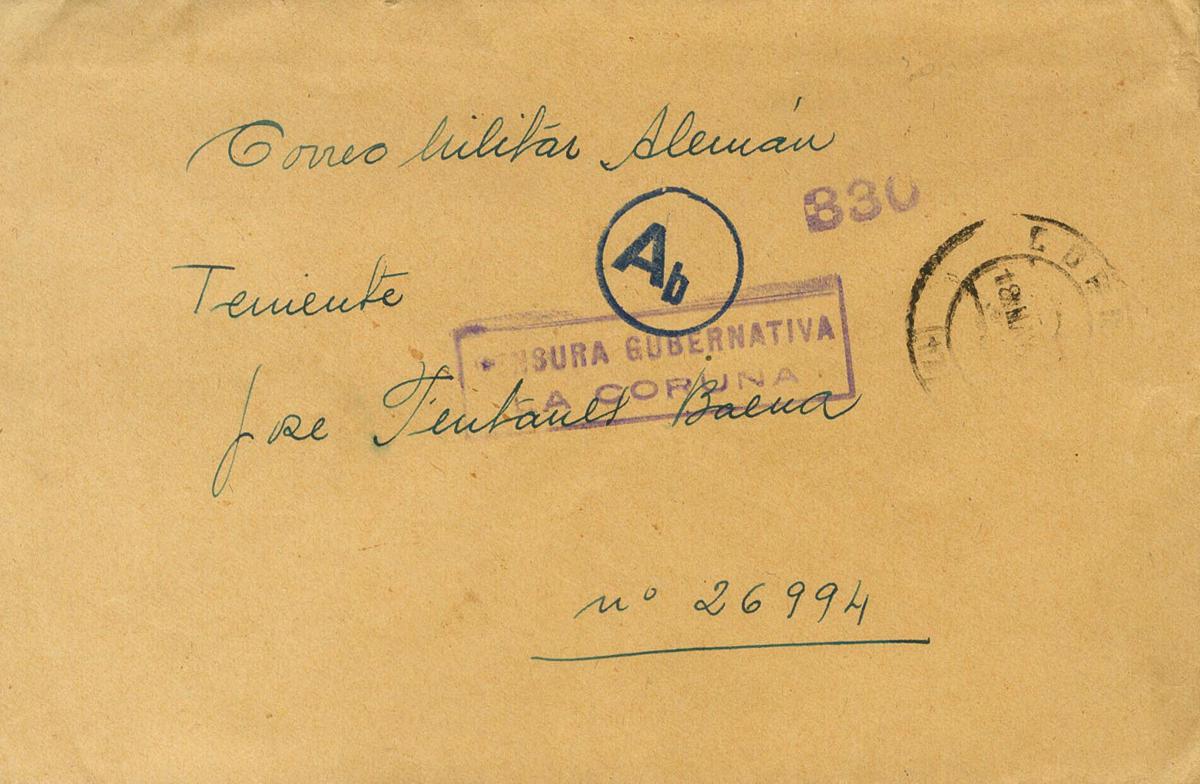 Correo Militar Alemán
830
Ab
Teniente
CENSURA GUBERNATIVA
LA CORUÑA
Jose Fentanes Baena
nº 26994